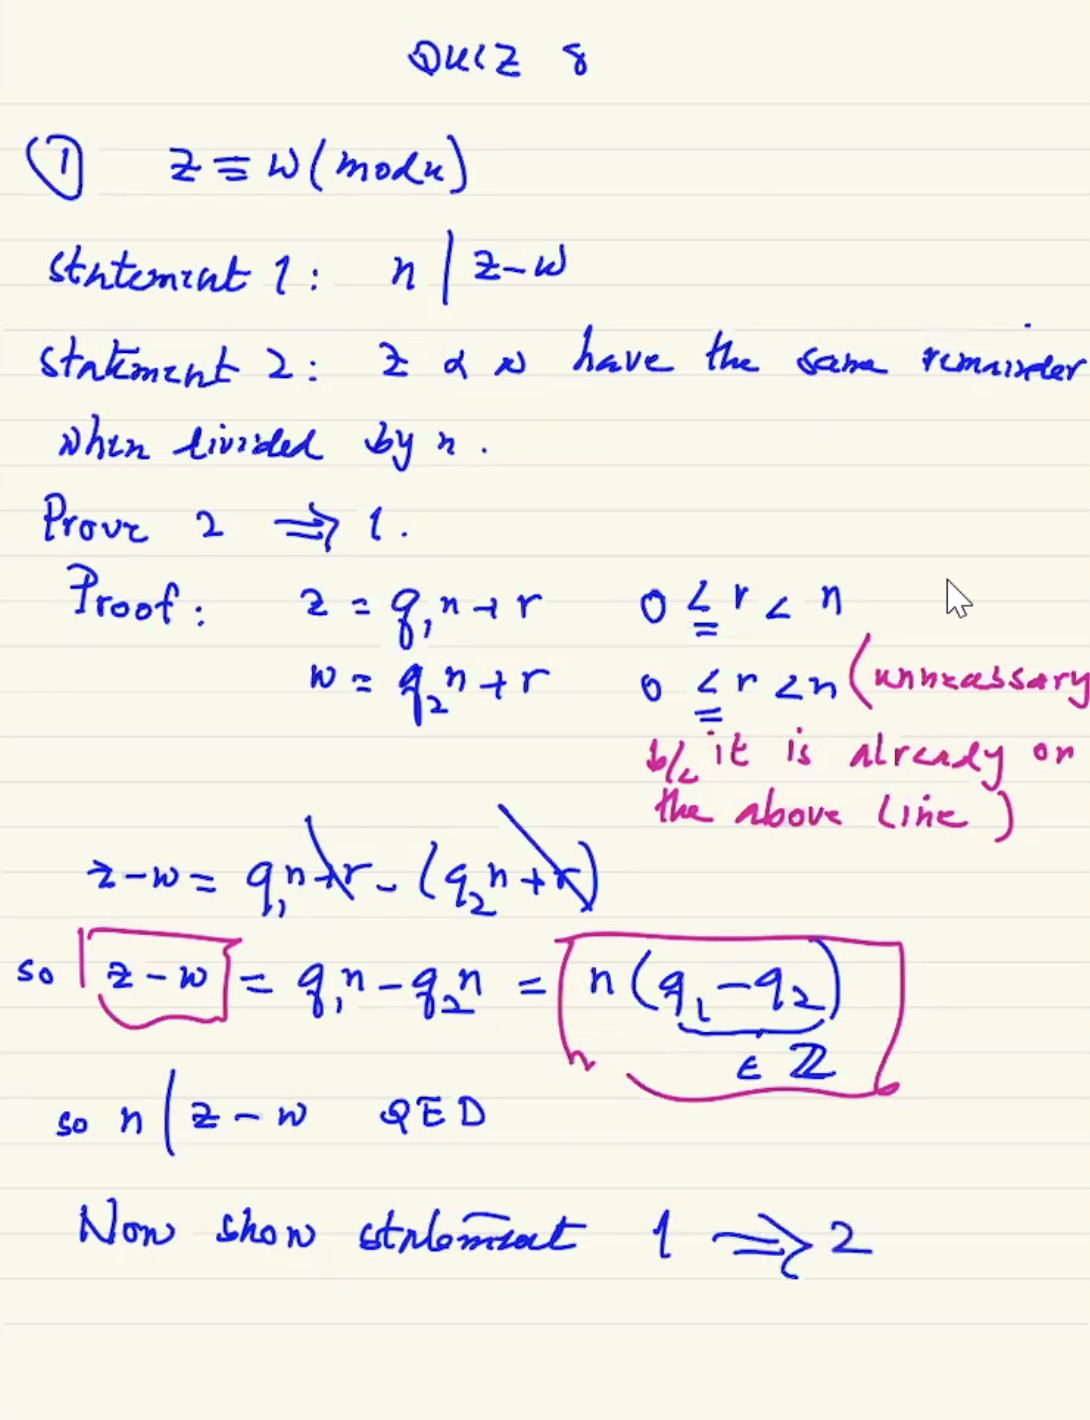 QUIZ 8
① z ≡ w (mod n)
statement 1: n | z-w
statement 2: z & w have the same remainder
when divided by n.
Prove 2 ⇒ 1.
Proof: z = q₁n + r 0 ≤ r < n
w = q₂n + r 0 ≤ r < n (unnecassary
b/c it is already on
the above line)
z-w = q₁n + r - (q₂n + r)
so z-w = q₁n - q₂n = n(q₁-q₂)
∈ ℤ
so n | z-w QED
Now show statement 1 ⇒ 2